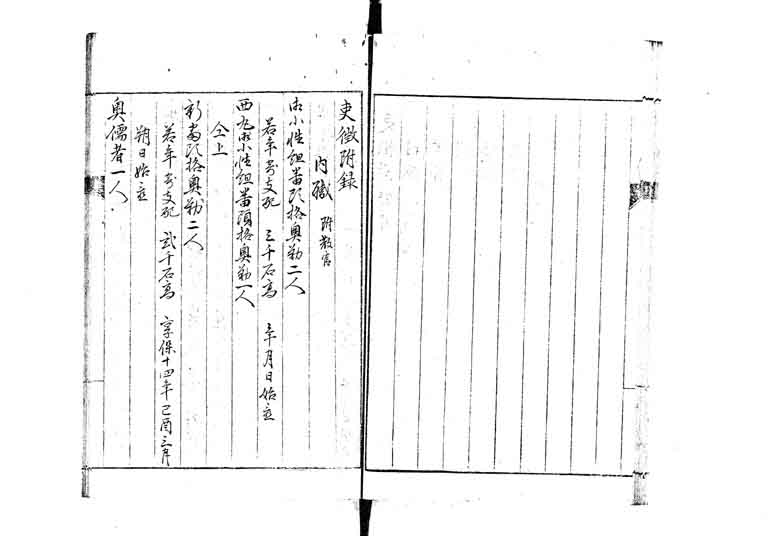 吏徴附録
内職 附教官
御小性組番頭格奥勤二人
若年寄支配 三千石高 年月日始立
西丸御小性組番頭格奥勤一人
仝上
新番頭格奥勤二人
若年寄支配 弐千石高 享保十四年己酉三月
朔日始立
奥儒者一人